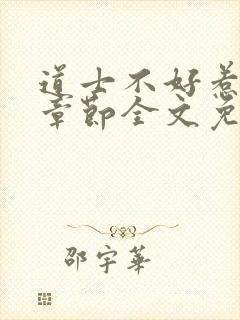 道士不好惹
章節全文免
邵宇華